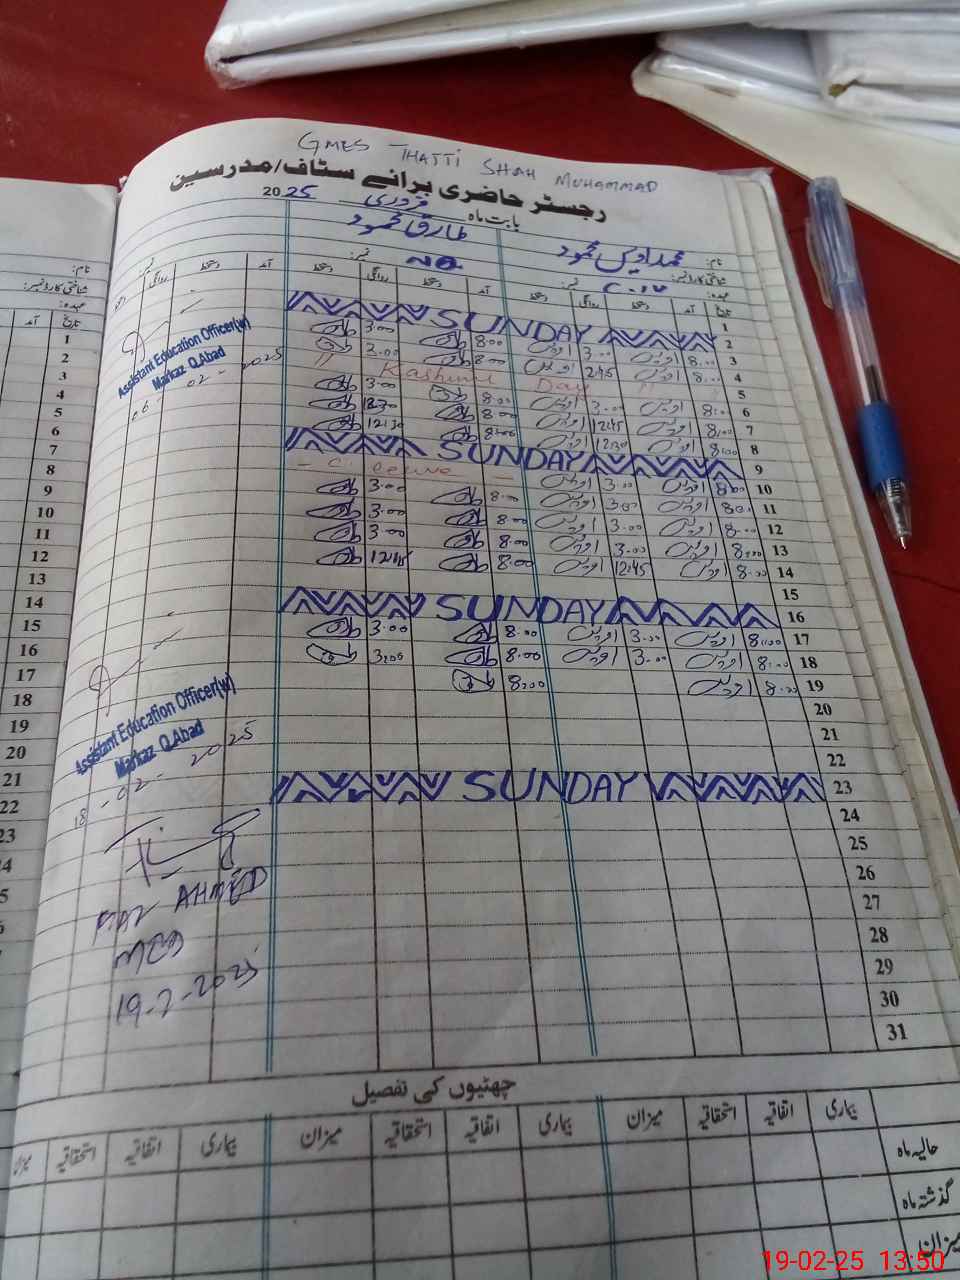 GMES THATTI SHAH MUHAMMAD
رجسٹر حاضری برائے سٹاف/مدرسین
بابت ماہ فروری 2025
نام: محمد اویس محمود طارق محمود
شناختی کارڈ نمبر: نمبر: نمبر:
عہدہ:
تاریخ آمد دستخط روانگی دستخط آمد دستخط روانگی دستخط آمد
1
SUNDAY 2
3 8:00 اویس 3:00 اویس 8:00 3:00
4 8:00 اویس 2:45 اویس 8:00 2:00
5 Kashmir Day
6 8:00 اویس 3:00 اویس 8:00 3:00
7 8:00 اویس 12:45 اویس 8:00 12:30
8 8:00 اویس 12:30 اویس 8:00 12:30
SUNDAY 9
10 8:00 اویس 3:00 اویس
11 8:00 اویس 3:00 اویس 8:00 3:00
12 8:00 اویس 3:00 اویس 8:00 3:00
13 8:00 اویس 3:00 اویس 8:00 3:00
14 8:00 اویس 12:45 اویس 8:00 12:45
15
SUNDAY 16
17 8:00 اویس 3:00 اویس 8:00 3:00
18 8:00 اویس 3:00 اویس 8:00 3:00
19 8:00 اویس 8:00
20
21
22
SUNDAY 23
24
25
26
27
28
29
30
31
Assistant Education Officer(w)
Markaz Q.Abad
06-02-2025
Assistant Education Officer(w)
Markaz Q.Abad
18-02-2025
AHMED
19-2-2025
چھٹیوں کی تفصیل
بیماری اتفاقیہ استحقاقیہ میزان بیماری اتفاقیہ استحقاقیہ میزان بیماری اتفاقیہ استحقاقیہ میزان
حالیہ ماہ
گذشتہ ماہ
میزان
نام:
شناختی کارڈ نمبر:
عہدہ:
تاریخ آمد
1
2
3
4
5
6
7
8
9
10
11
12
13
14
15
16
17
18
19
20
21
22
23
19-02-25 13:50